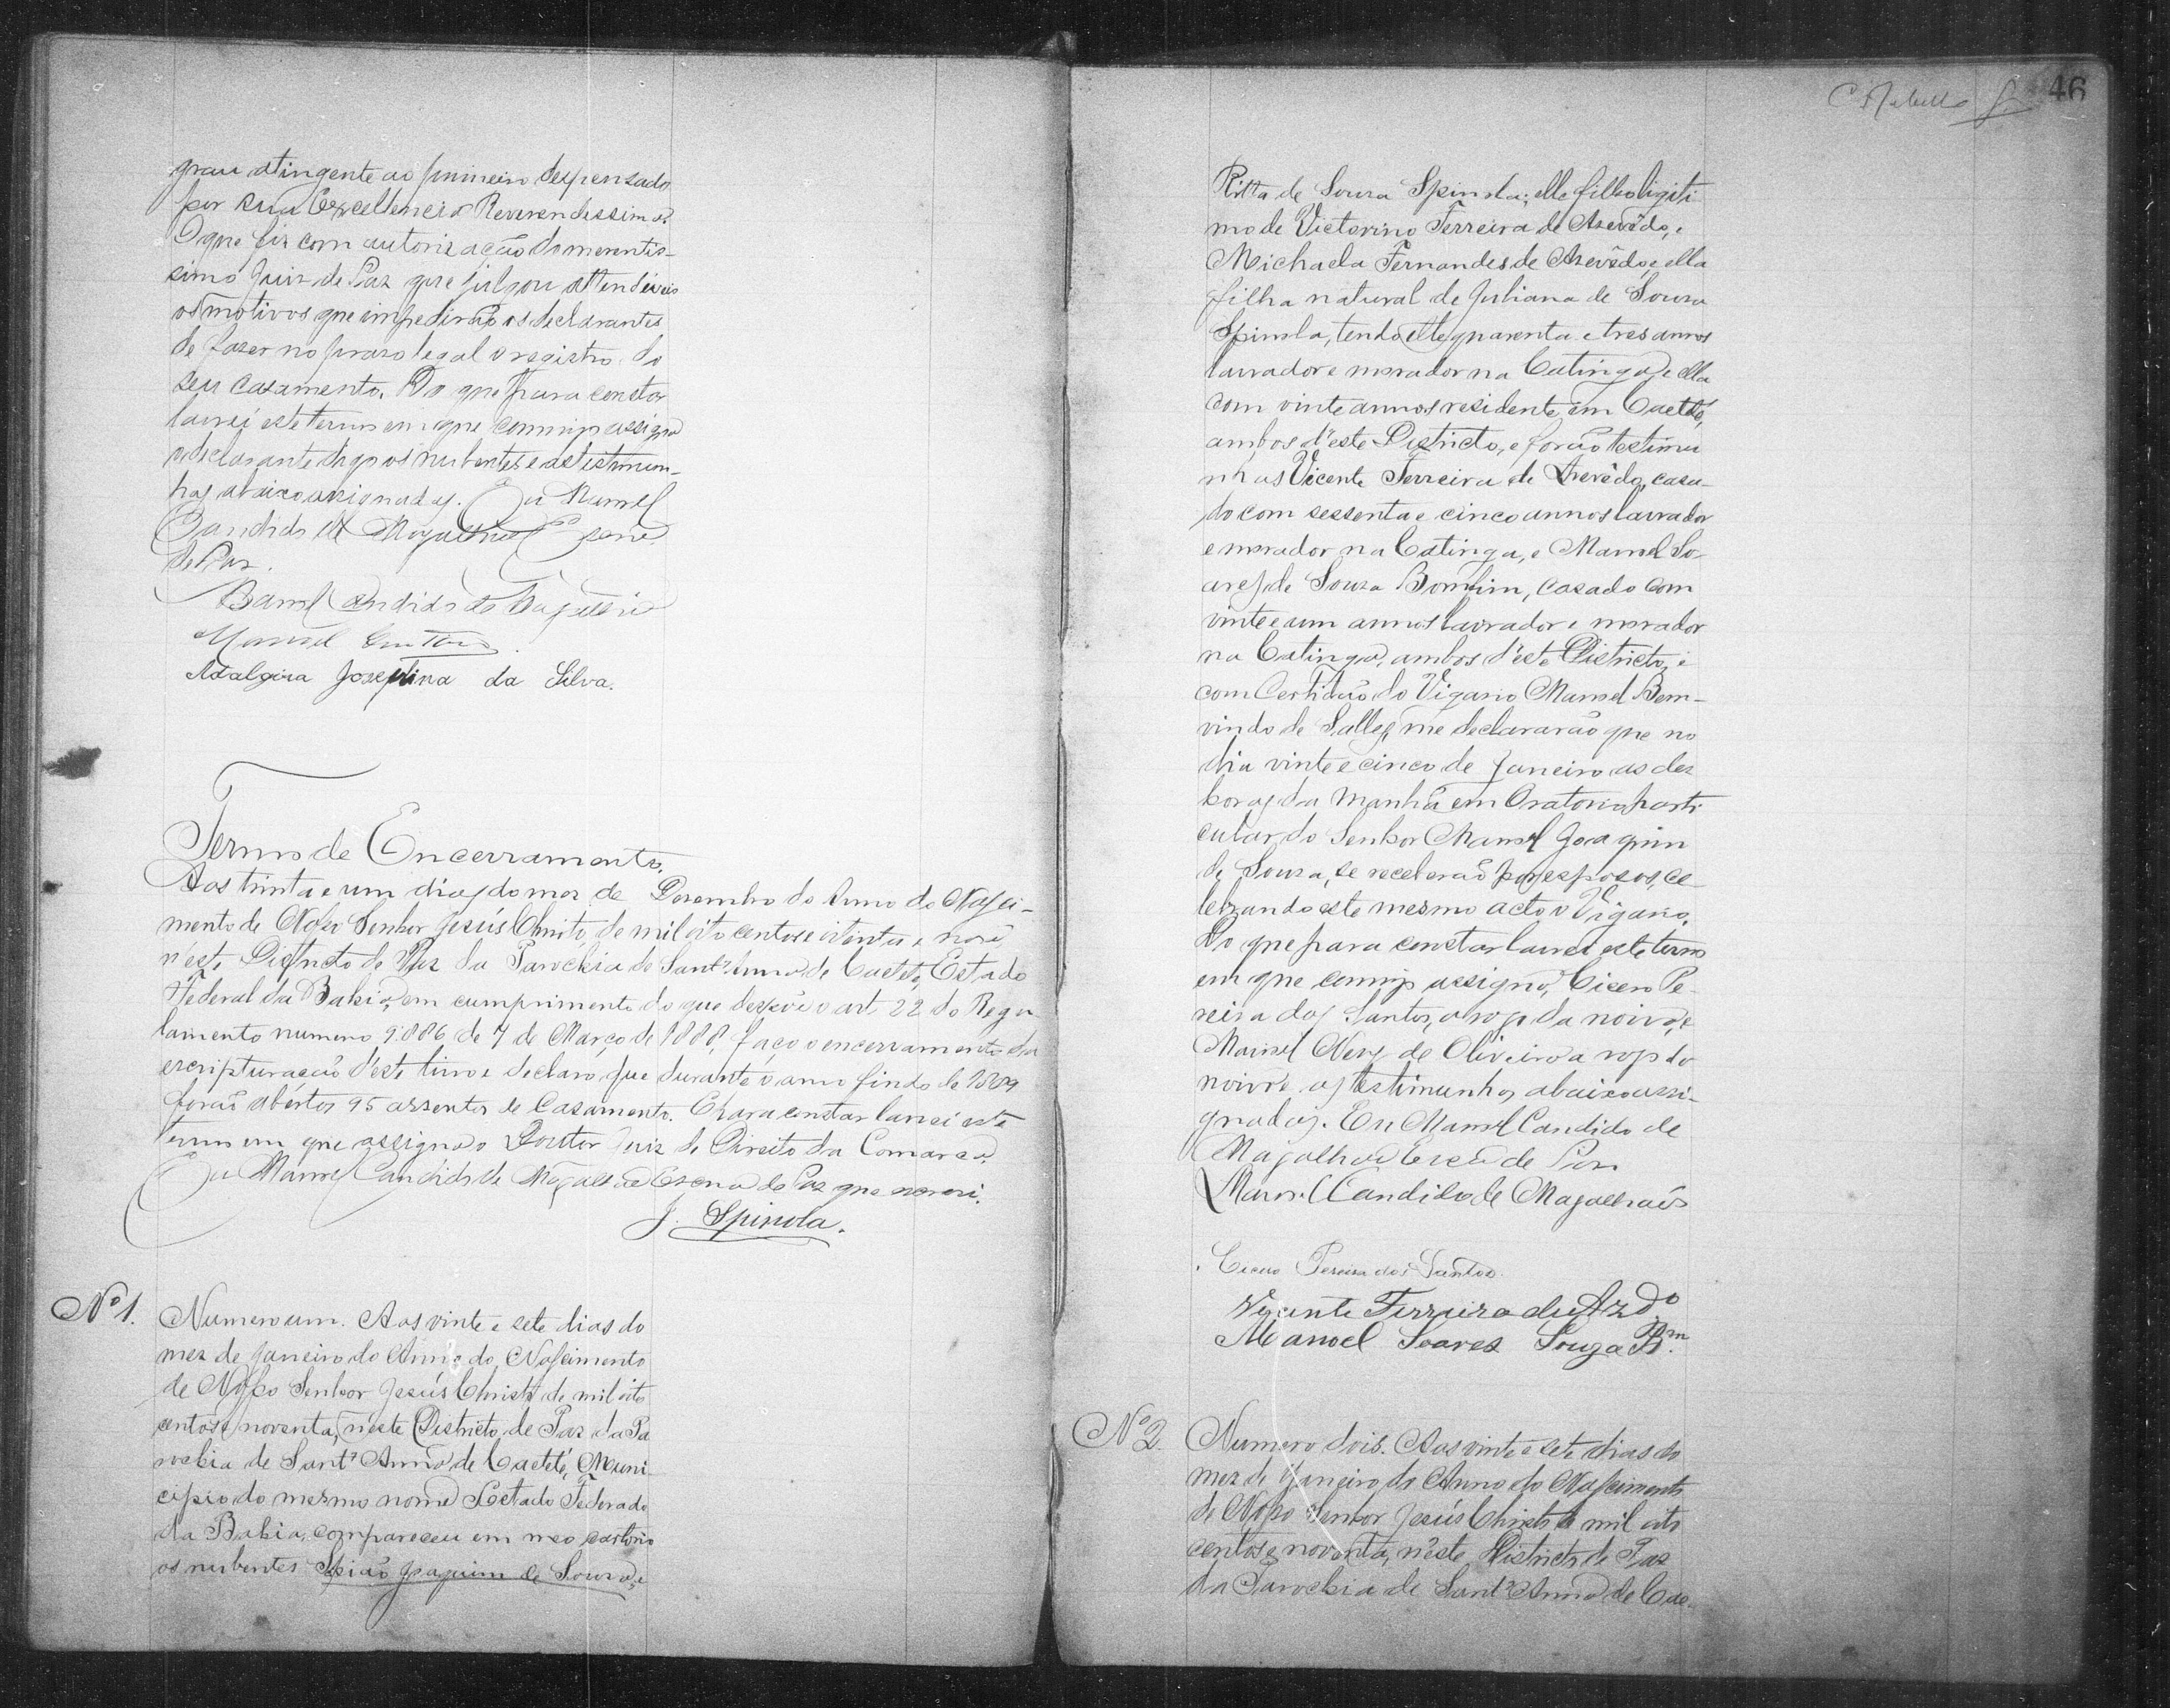 grau atingente ao primeiro despensado
por Sua Excellencia Reverendissima.
O que fiz com autorização do merentis-
simo Juiz de Paz que julgou attendiveis
os motivos que impedirão os declarantes
de fazer no praso legal o registro do
seu casamento. Do que para constar
lavrei este termo em que commigo assigna
o declarante digo os nubentes e as testimun-
has abaixo assignadas. Eu Manoel
Candido de Magalhães Escrm
de Paz.
Manoel Candido de Magalhães
Manoel
Adalgisa Josephina da Silva.
Termo de Encerramento.
Aos trinta e um dias do mez de Dezembro do Anno do Nasci-
mento de Nosso Senhor Jesús Christo, de mil oito centos e oitenta e nove,
n'este Districto de Paz da Parochia de Sant'Anna de Caeteté, Estado
Federal da Bahia, em cumprimento do que dispõe o art. 22 do Regu-
lamento numero 9.886 de 7 de Março de 1888, faço o encerramento da
escripturação d'este livro e declaro que durante o anno findo de 1889
forão abertos 95 assentos de Casamento. E para constar lavrei este
termo em que assigna o Doutor Juiz de Direito da Comarca.
Eu Manoel Candido de Magalhães Escrm de Paz que escrevi.
J. Spinola.
Nº 1.
Numero um. Aos vinte e sete dias do
mez de Janeiro do Anno do Nascimento
de Nosso Senhor Jesús Christo de mil oito
centos e noventa, n'este Districto de Paz da Pa
rochia de Sant'Anna de Caeteté, Muni-
cipio do mesmo nome Estado Federado
da Bahia, compareceu em meo cartorio
os nubentes Joaquim de Souza, e
C Rebello 46
Ritta de Souza Spinola; elle filholigiti
mo de Victorino Ferreira de Asevêdo, e
Michaela Fernandes de Asevêdo, e ella
filha natural de Juliana de Souza
Spinola, tendo elle quarenta e tres annos
lavrador e morador na Catinga, e ella
com vinte annos residente em Caeteté,
ambos d'este Districto, e forão testimu
nhas Vicente Ferreira de Asevêdo, casa-
do com sessenta e cinco annos lavrador
e morador na Catinga, e Manoel So-
ares de Souza Bomfim, casado com
vinte e um annos lavrador e morador
na Catinga, ambos d'este Districto, e
com Certidão do Vigario Manoel Bem-
vindo de Salles, me declararão que no
dia vinte e cinco de Janeiro as dez
horas da manhã em Oratorio parti
cular do Senhor Manoel Joaquim
de Souza, se receberão por esposos, ce-
lebrando este mesmo acto o Vigario.
Do que para constar lavrei este termo
em que commigo assigna, Cicero Pe-
reira dos Santos, a rogo da noiva, e
Manoel Neves de Oliveira a rogo do
noivo e as testimunhas abaixo assi-
gnadas. Eu Manoel Candido de
Magalhães Escrm de Paz
Manoel Candido de Magalhaes
Cicero Pereira dos Santos.
Vicente Ferreira de Azdo
Manoel Soares Souza Bm.
Nº 2.
Numero dois. Aos vinte e sete dias do
mez de Janeiro do Anno do Nascimento
de Nosso Senhor Jesús Christo de mil oito
centos e noventa, n'este Districto de Paz
da Parochia de Sant'Anna de Cae-